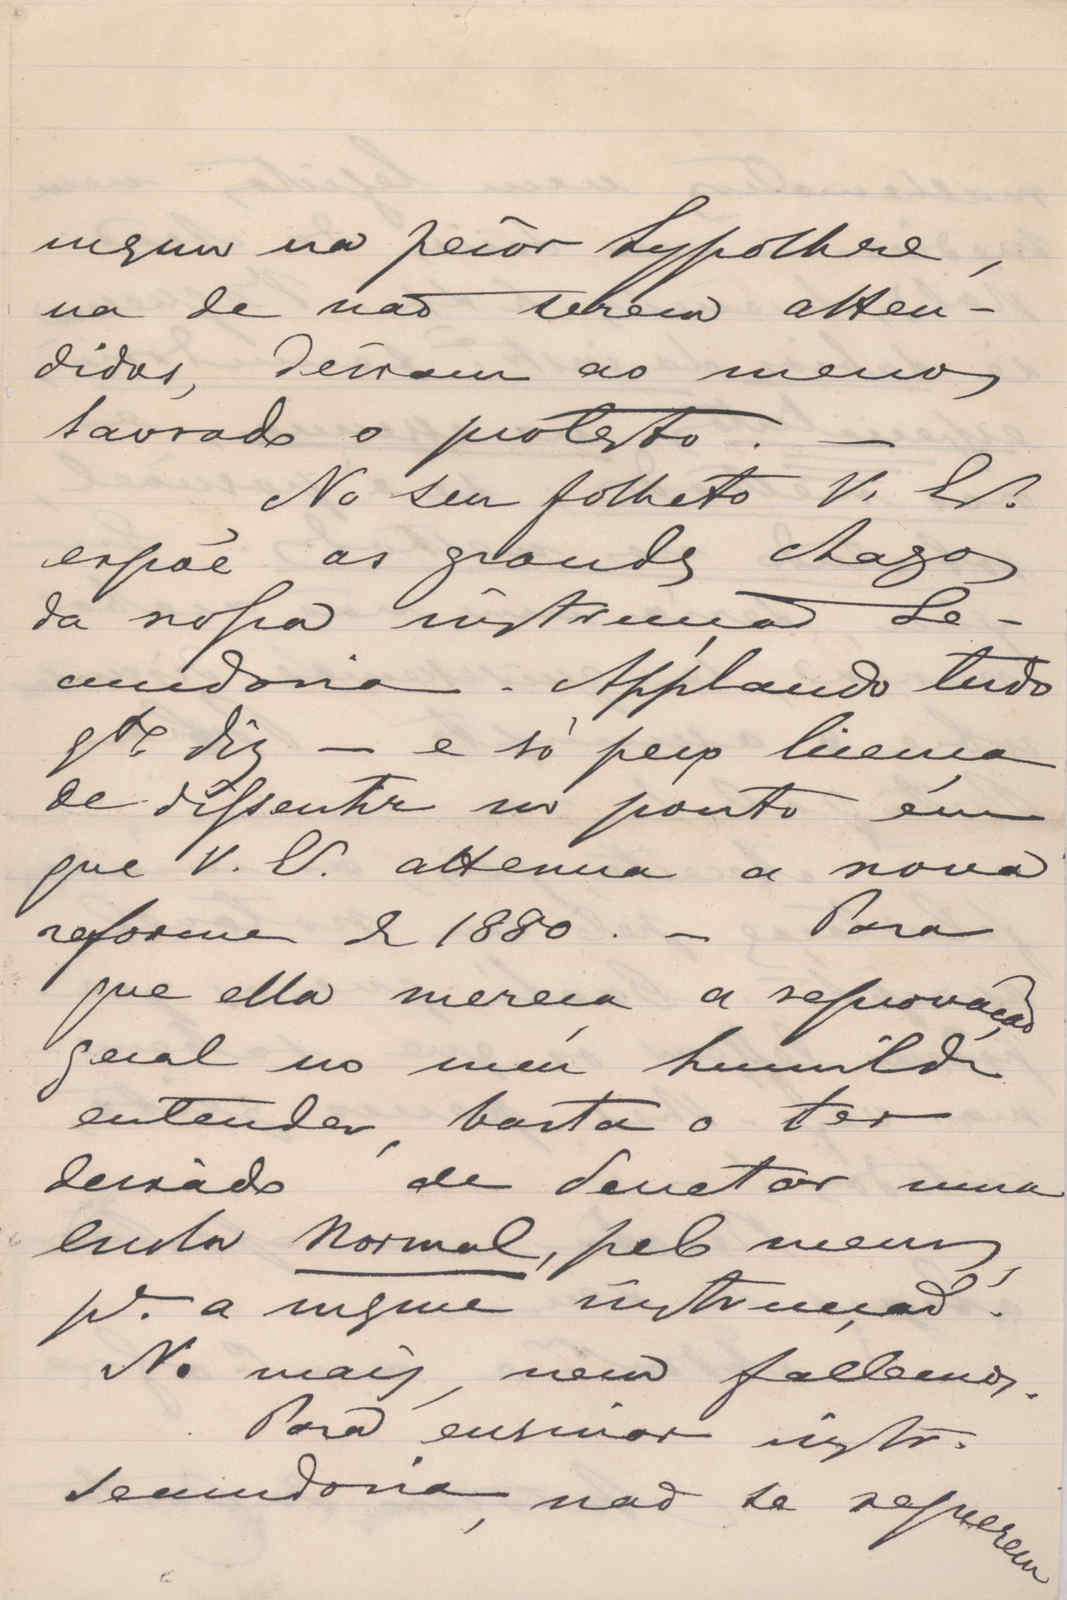 mesmo na peior hypothese,
na de não serem atten-
didos, deixam ao menos
lavrado o protesto. —
No seu folheto V. Ex.
expõe as grandes chagas
da nossa instrucção se-
cundaria. Applaudo tudo
q.to diz — e só peço licença
de dissentir no ponto em
que V. Ex. attenua a nova
reforma de 1880. — Para
que ella mereça a reprovação
geral no meu humilde
entender, basta o ter
deixado de decretar uma
Escola Normal, pelo menos,
p.a a mesma instrucção.
No mais, nem fallemos.
Para ensinar instr.
secundaria, não se requerem